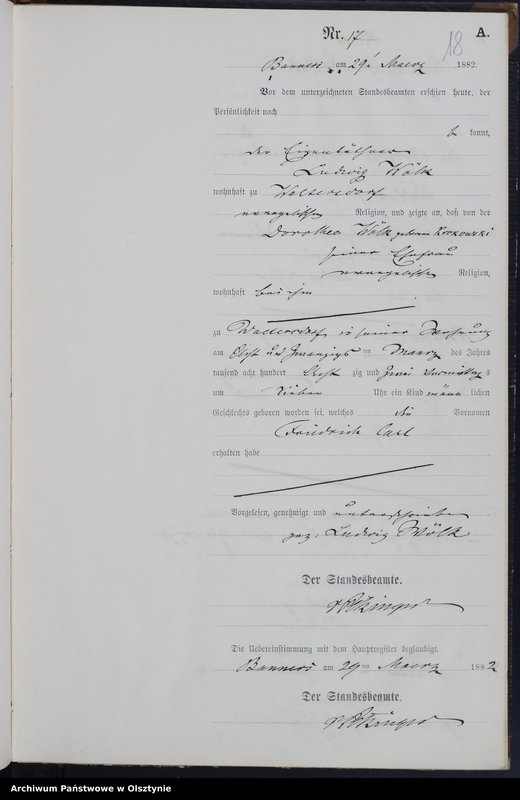 Nr. 17
18
A.
Banners am 29 Maerz 1882.
Vor dem unterzeichneten Standesbeamten erschien heute, der
Persönlichkeit nach
be kannt,
der Eigenthümer
Ludwig Wölk
wohnhaft zu Waltersdorf
evangelischer Religion, und zeigte an, daß von der
Dorothea Wölk geborne Krokowski
seiner Ehefrau
evangelischer Religion,
wohnhaft bei ihm
zu Waltersdorf in seiner Wohnung
am Acht und zwanzigs ten Maerz des Jahres
tausend acht hundert Acht zig und Zwei Vormittag s
um Sieben Uhr ein Kind männ lichen
Geschlechts geboren worden sei, welches die Vornamen
Friedrich Carl
erhalten habe
Vorgelesen, genehmigt und unterschrieben
gez: Ludwig Wölk
Der Standesbeamte.
Die Uebereinstimmung mit dem Hauptregister beglaubigt.
Banners am 29 ten Maerz 1882
Der Standesbeamte.
Archiwum Państwowe w Olsztynie